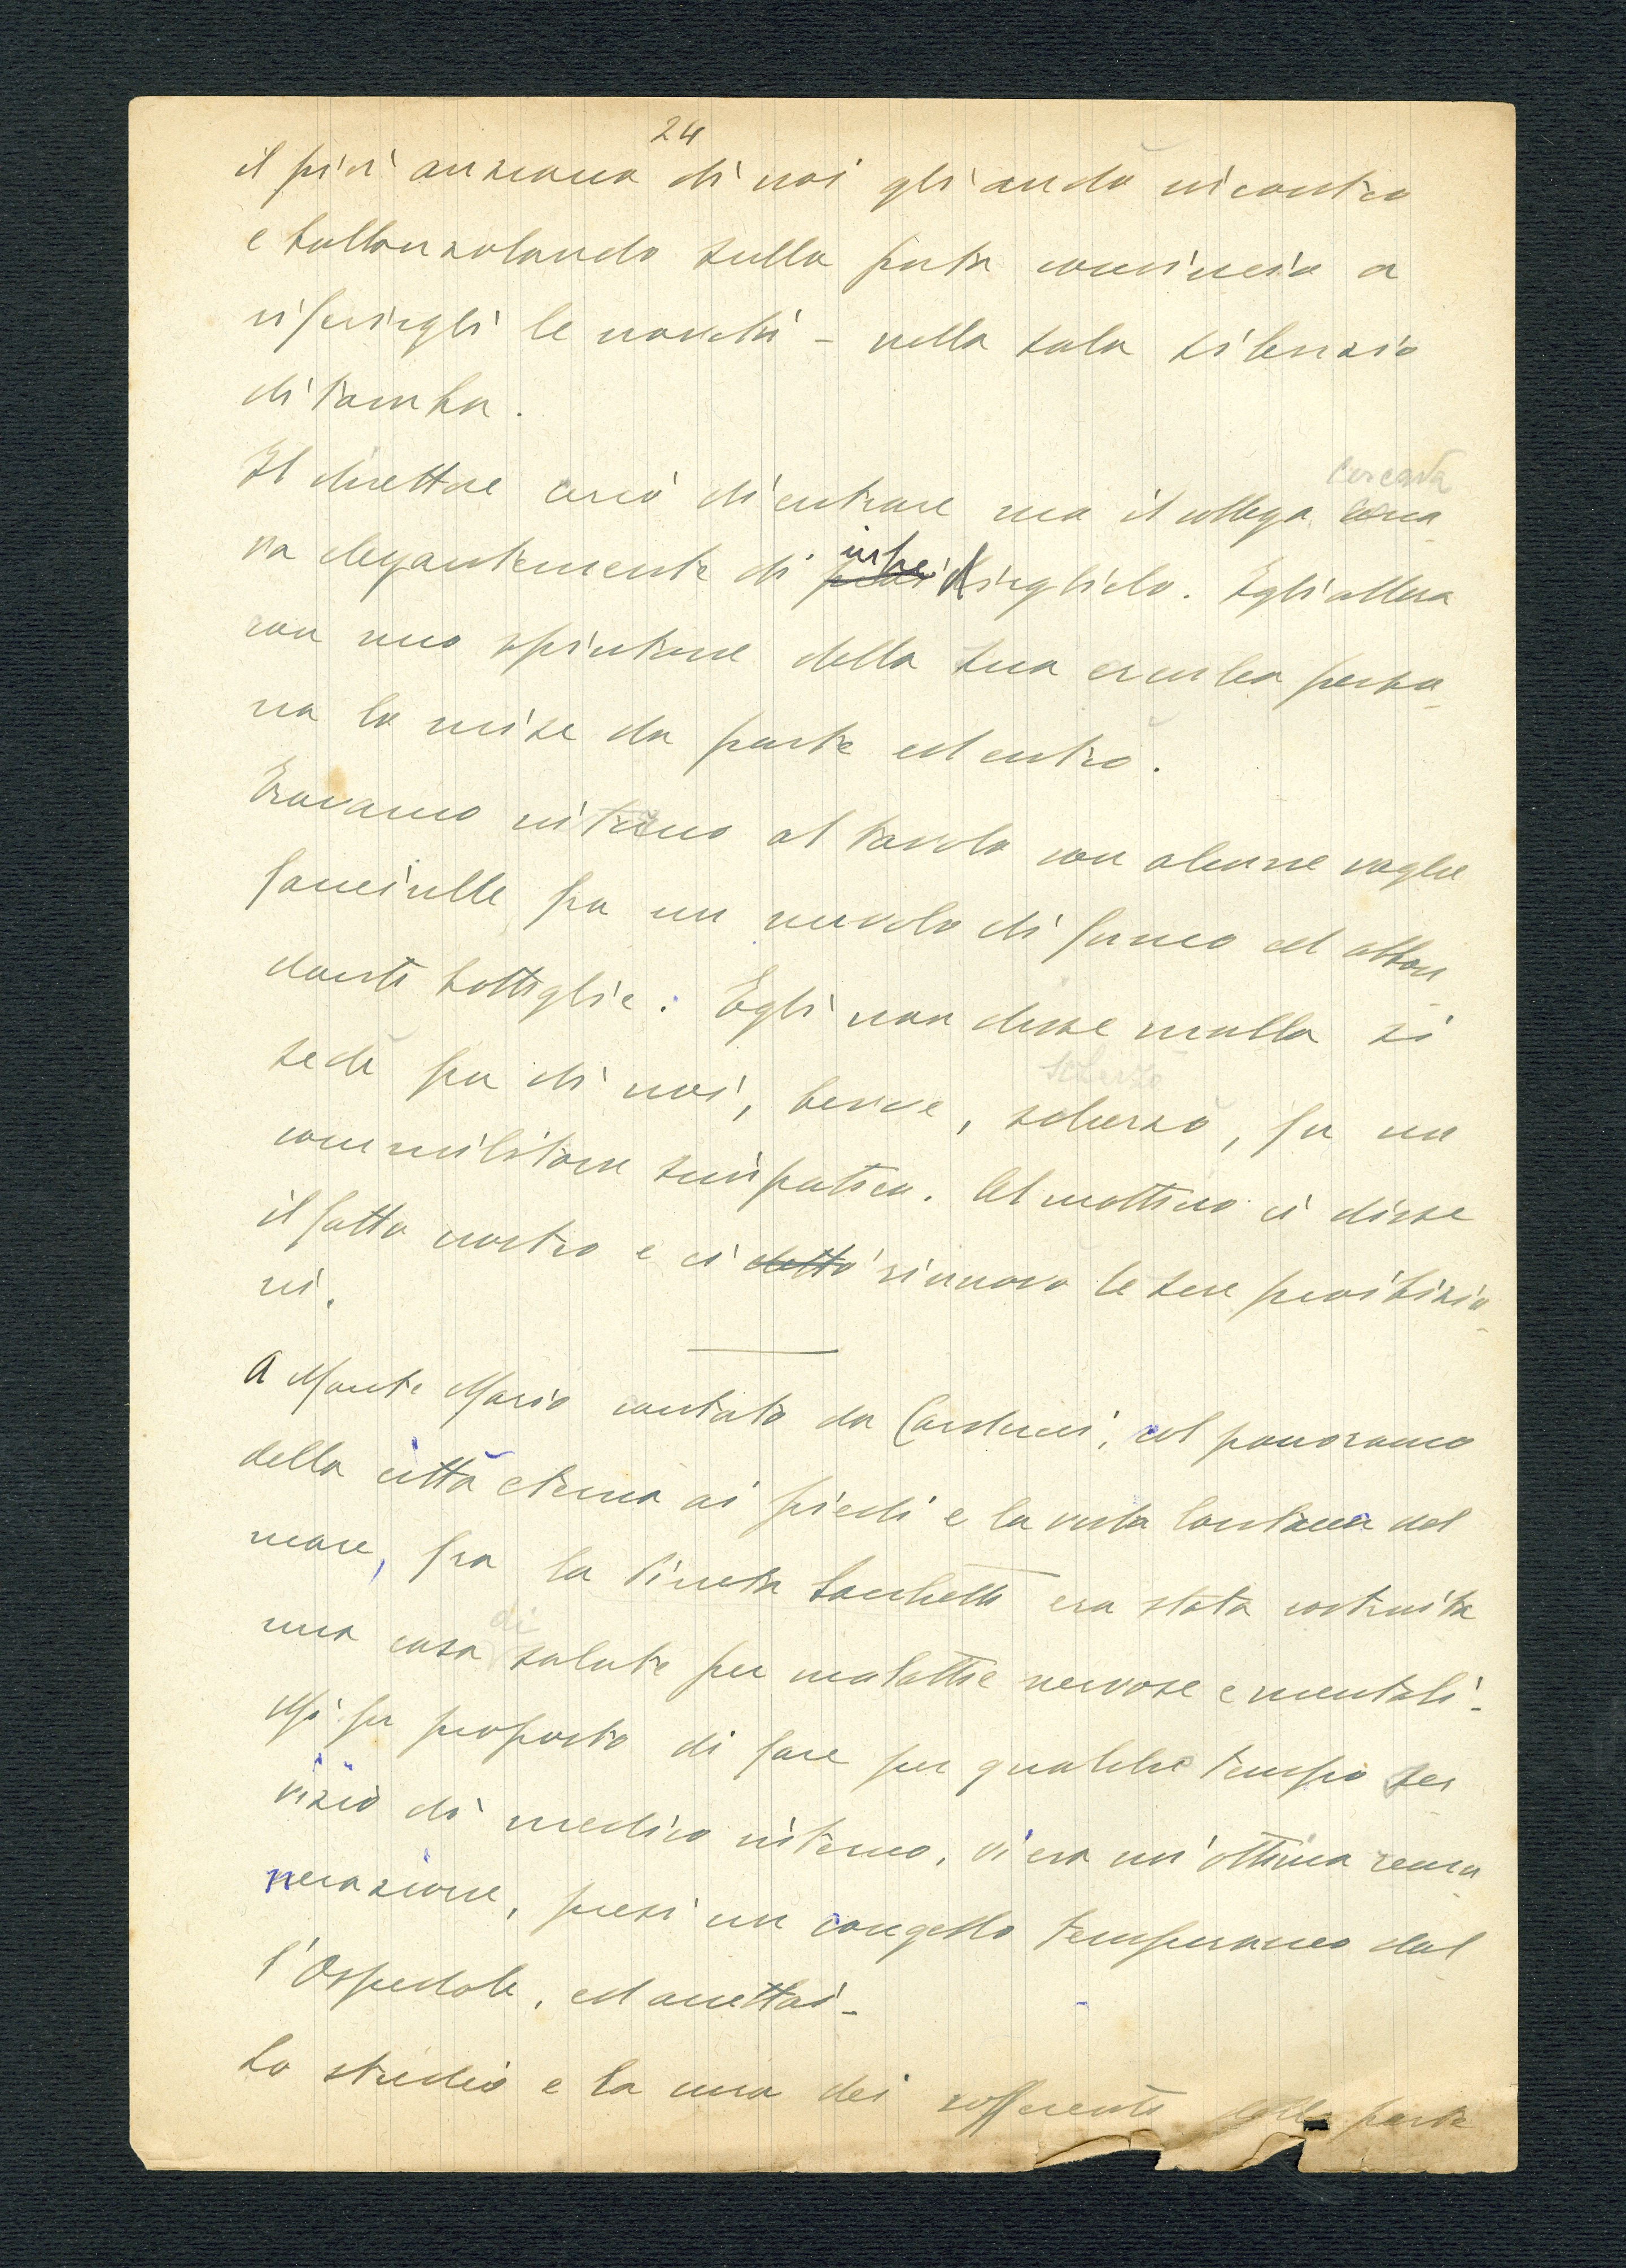 24
il più anziano di noi gli andò incontro
e ballonzolando sulla porta comincia a
riferirgli le novità - nella sala silenzio
di tomba.
Il direttore cercò di entrare ma il collega cercava
va elegantemente di impedirglielo. Egli allora
con uno spintone della sua erculea perso-
na lo mise da parte ed entrò.
Eravamo intorno al tavolo con alcune vaghe
fanciulle fra un nuvolo di fumo ed abbon-
danti bottiglie. Egli non disse nulla si
sedè fra di noi, bevve, scherzò, fu un
commilitone simpatico. Al mattino ci disse
il fatto nostro e ci dettò rinnovò le sue proibizio-
ni.
A Monte Mario cantato da Carducci, col panorama
della città eterna ai piedi e la vista lontana del
mare, fra la Pineta Sacchetti era stata costruita
una casa di salute per malattie nervose e mentali -
Mi fu proposto di fare per qualche tempo ser
vizio di medico interno, vi era un'ottima remu-
nerazione, presi un congedo temporaneo dal
l'Ospedale, ed accettai -
Lo studio e la cura dei sofferenti della parte